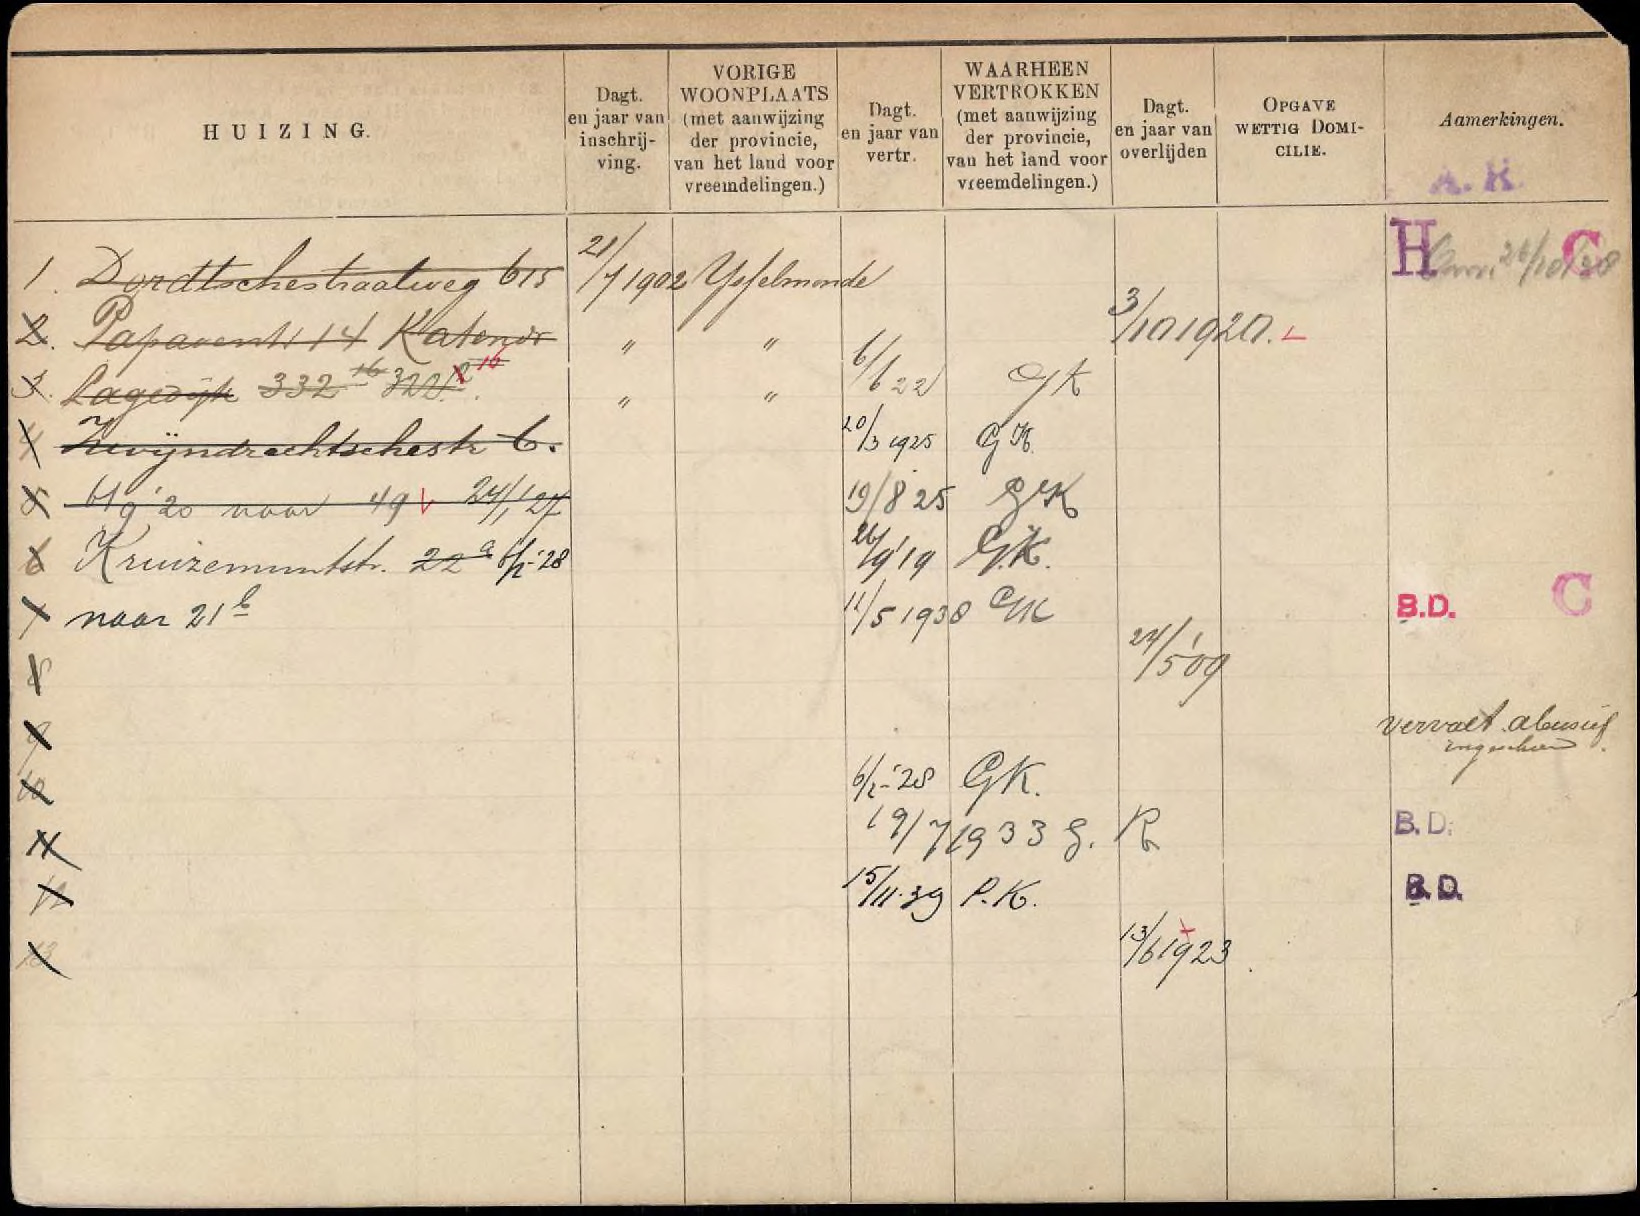 HUIZING.
Dagt. en jaar van inschrij- ving.
VORIGE WOONPLAATS (met aanwijzing der provincie, van het land voor vreemdelingen.)
Dagt. en jaar van vertr.
WAARHEEN VERTROKKEN (met aanwijzing der provincie, van het land voor vreemdelingen.)
Dagt. en jaar van overlijden
OPGAVE WETTIG DOMI- CILIE.
Aamerkingen.
A. K.
1. Dordtschestraatweg 615 21/7 1902 Ysselmonde H 26/10 38 C
2. Papaverstr 14 Katendr " " 3/10 1920.
3. Lagedijk 332 16 322 12 16 " " 6/6 22 GK
4 Zwijndrechtschestr 6. 20/3 1925 GK
5 20 naar 49 24/1 27 19/8 25 GK
6 Kruizemuntstr. 22 a 6/2-28 26/9 19 G.K.
7 naar 21 b 11/5 1938 GK B.D. C
8 24/5 '09
9 vervalt abusief
10 6/2-'28 GK.
11 19/7 1933 G. K B.D.
12 15/11-39 P.K. B.D.
13 13/6 1923